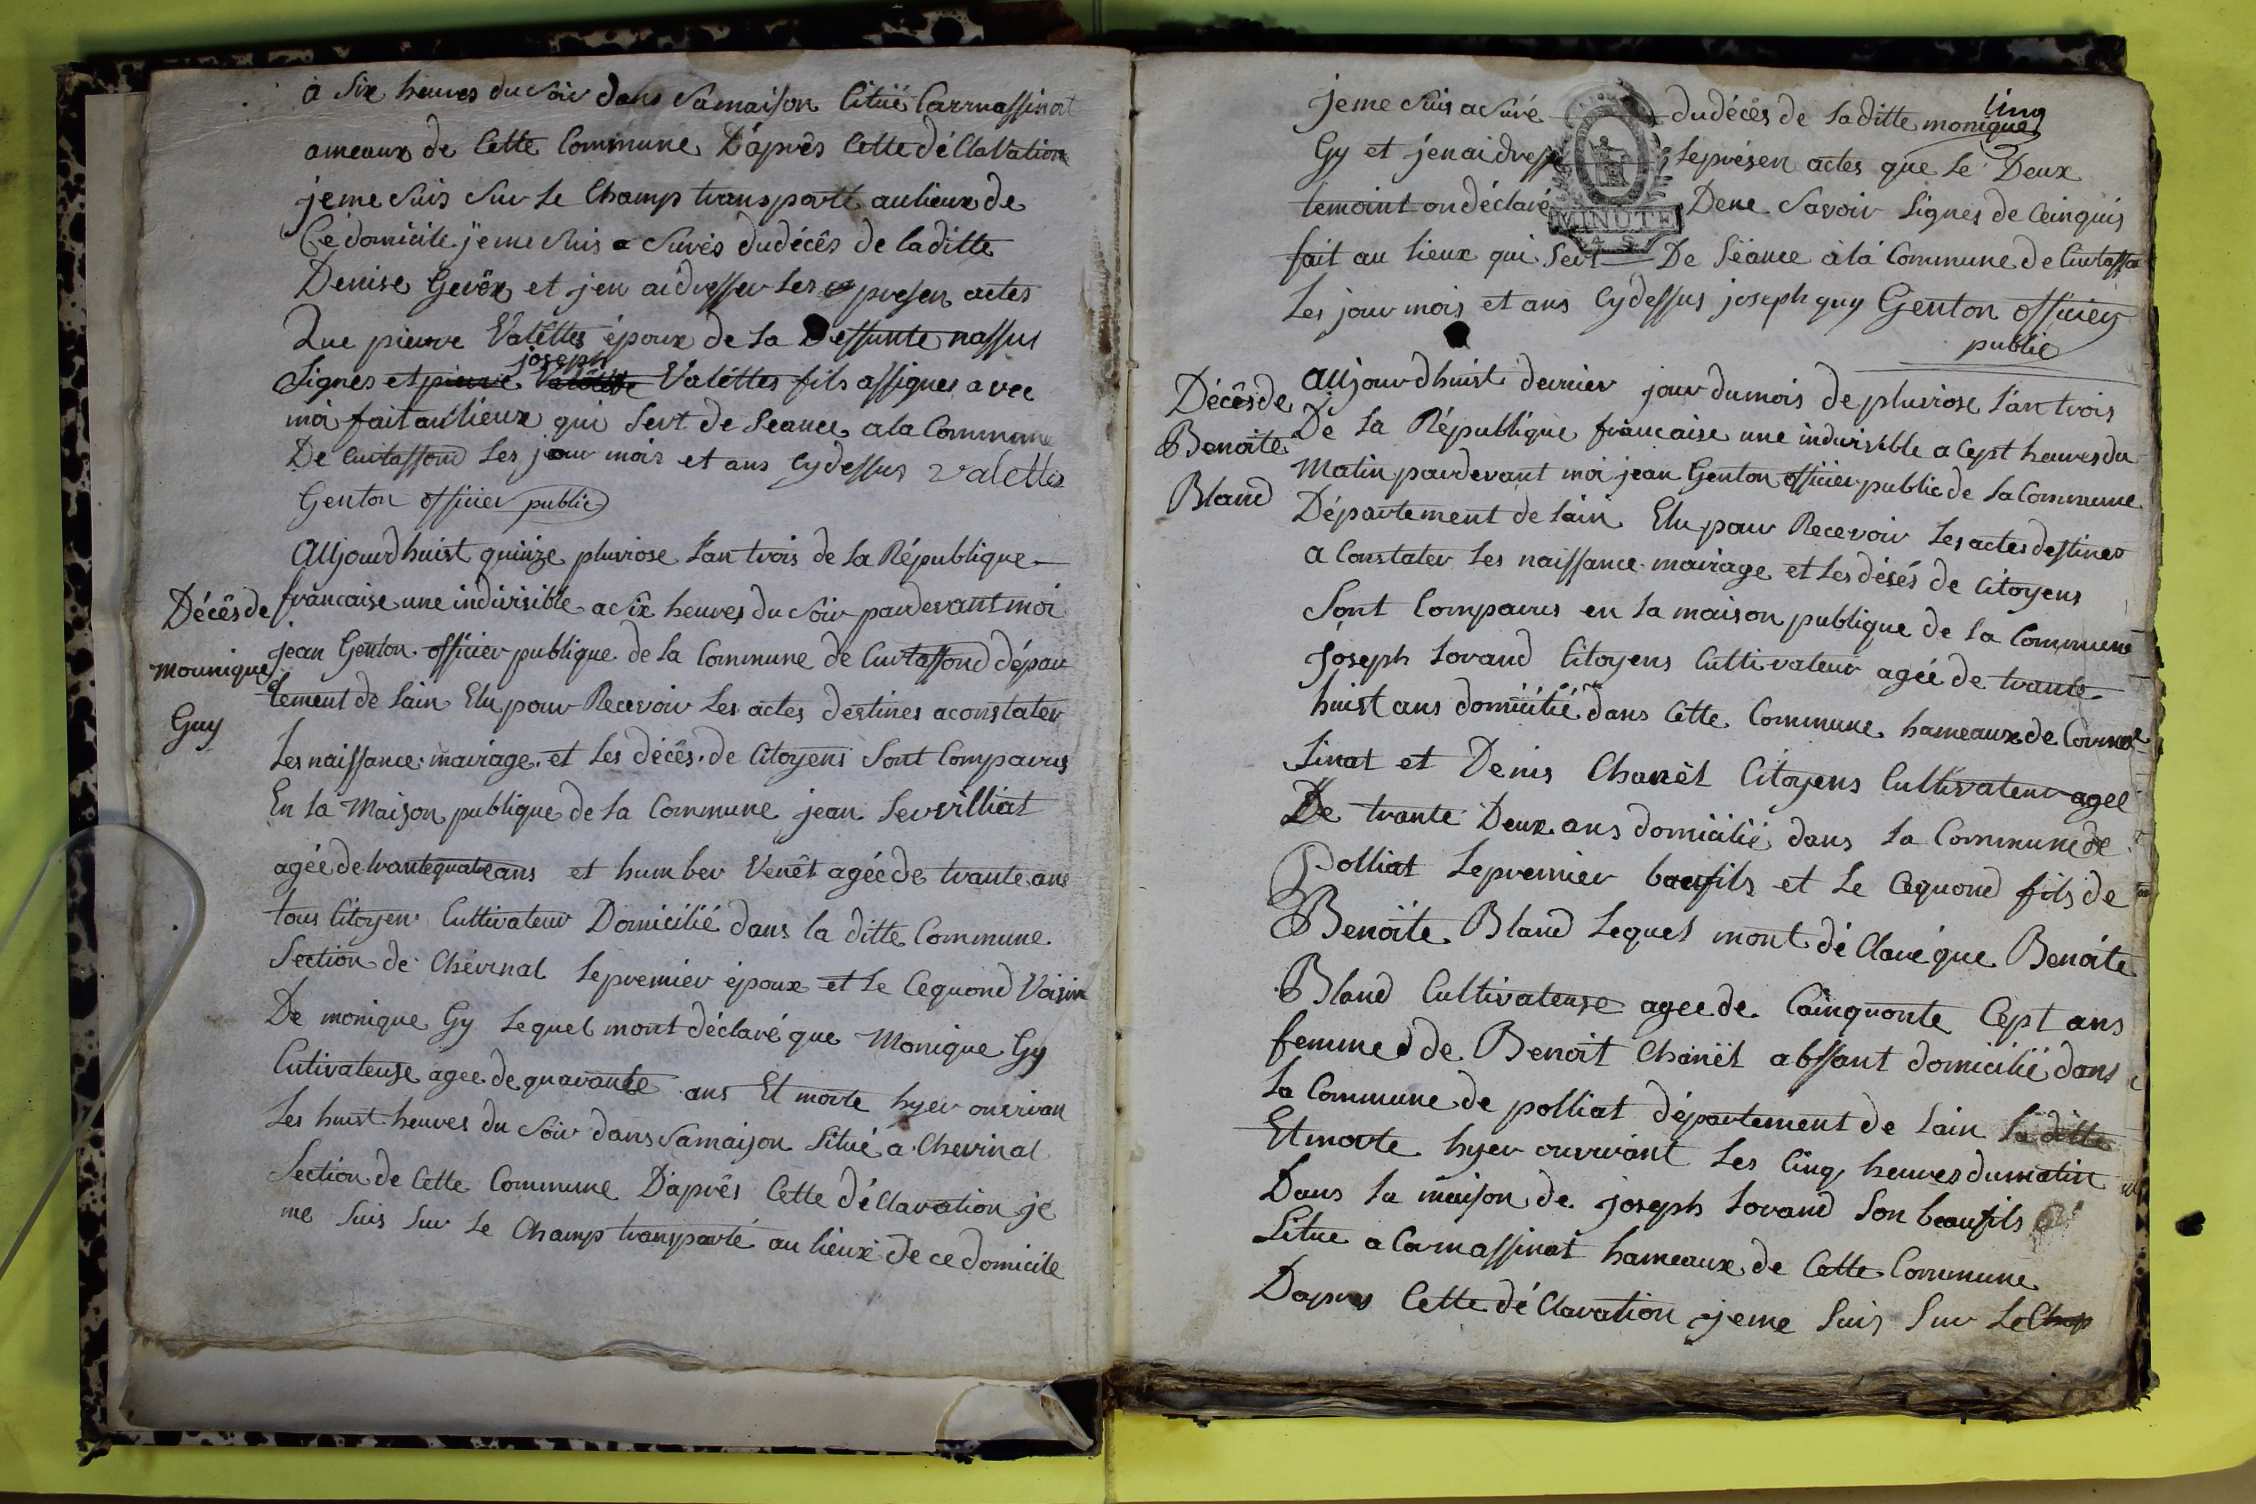 à Six heures du Soir dans Samaison Citüé Carrnassinat
ameaux de Cette Commune D'après Cette déClaration
jeme suis sur Le Champ transporté aulieux de
Ce domicile jeme suis a surés dudécês de laditte
Denise Gevëx et jen aidresser Les presen actes
Que pierre Valéttes époux de la Deffunte nassus
joseph
Signes et pierre Valétte Valéttes fils assignes avec
moi fait aulieux qui Sert de Seance ala Commune
De Curtaffond Les jour mois et ans Cydessus Valettes
Genton officier public
Aujourdhuist quinze pluviose L'an trois de la République
Décês de
francaise une indivisible a cix heures du soir pardevant moi
jean Genton officier publique de la Commune de Curtaffond dépar
mounique
tement de Lain Elu pour Recevoir Les actes destines aconstater
Guy
Les naissance mairage et Les décês de Citoyens Sont Comparus
En la Maison publique de la Commune jean Servilliat
agée detrantequatreans et humber Venêt agéede trante ans
tous Citoyen Cultivateur Domicilié dans la ditte Commune
Section de Chévinal Lepremier époux et Le Cequond Voisin
De monique Gy Lequel mont déclaré que Monique Gy
Cutivateuse agee de quarante ans Et morte hyer ouvrivan
Les huist heures du soir dans Samaison Situé a Chevinal
Section de Cette Commune D'après Cette déClaration je
me Suis Sur Le Champ transporté au lieux de ce domicile
Cinq
jeme suis a suré dudécés de laditte monique
Gy et jenaidresse Leprésen actes que Le Deux
temoint ondéclaré Dene Savoir Signes de Ceinquis
MINUTE
4 S
fait au Lieux qui Sert De Séance à la Commune de Curtaffo
Les jour mois et ans Cydessus joseph guy Genton officier
public
Décês de
Benoite
Bland
Aujourdhuist dernier jour dumois de pluviose L'an trois
De La République francaise une indivisible a Cept heures du
Matin pardevant moi jean Genton officier public de la Commune
Département de Lain Elu pour Recevoir Les actes destines
a Constater Les naissance mairage et Les désés de Citoyens
Sont Comparus en la maison publique de la Commune
joseph Lorand Citoyens Cultivateur agée de trante
huist ans domicilié dans Cette Commune hameaux de Cornas
Sinat et Denis Chanêl Citoyens Cultivateur agée
De trante Deux ans domicilié dans la Commune de
Polliat Lepremier beaufils et Le Cequond fils de
Benoîte Bland Lequel mont dé Claré que Benoite
Bland Cultivateuse agee de Cainquonte Cept ans
femme de Benoit Chanêl absant domicilié dans
La Commune de polliat département de Lain la ditte
Et morte hyer ouvrivant Les Cinq heures dumatin
Dans la maison de joseph Lorand Son beaufils
Situe a Carnassinat hameaux de Cette Commune
Dapres Cette déClaration jeme Suis Sur Le Chmp